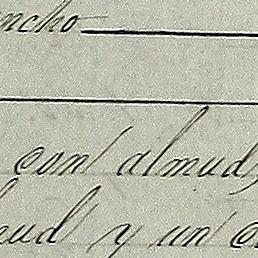 ncho
con almud,
ud y un